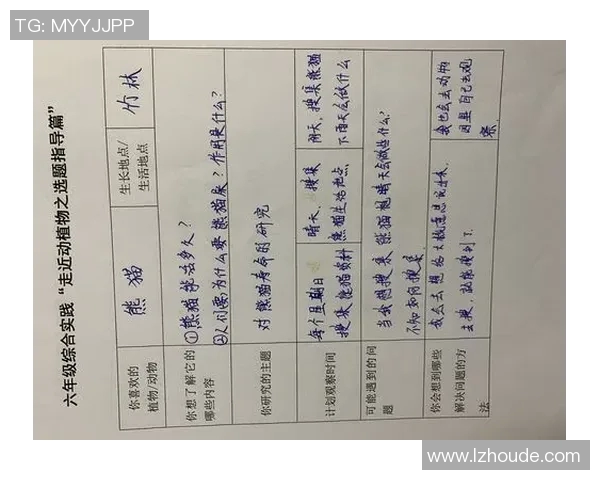 TG: MYYJJPP
六年级综合实践“走近动植物之选题指导篇”
你喜欢的
植物/动物
熊猫
生长地点/
生活地点
竹林
你想了解它的
哪些内容
①熊猫能活多久?
②人们要为什么要熊猫来?作用是什么?
你研究的主题
对熊猫寿命的研究
计划观察时间
每个星期日
搜集熊猫资料
晴天,搜集
熊猫生活地点
阴天,搜集熊猫
下雨天会做什么
可能遇到的问
题
当我想搜集熊猫晴天会做些什么?
不知如何搜集
你会想到哪些
解决问题的方
法
我会去想
去搜,就能搜到了.
我也会去动物
园里自己去观
察.
www.lzhoude.com